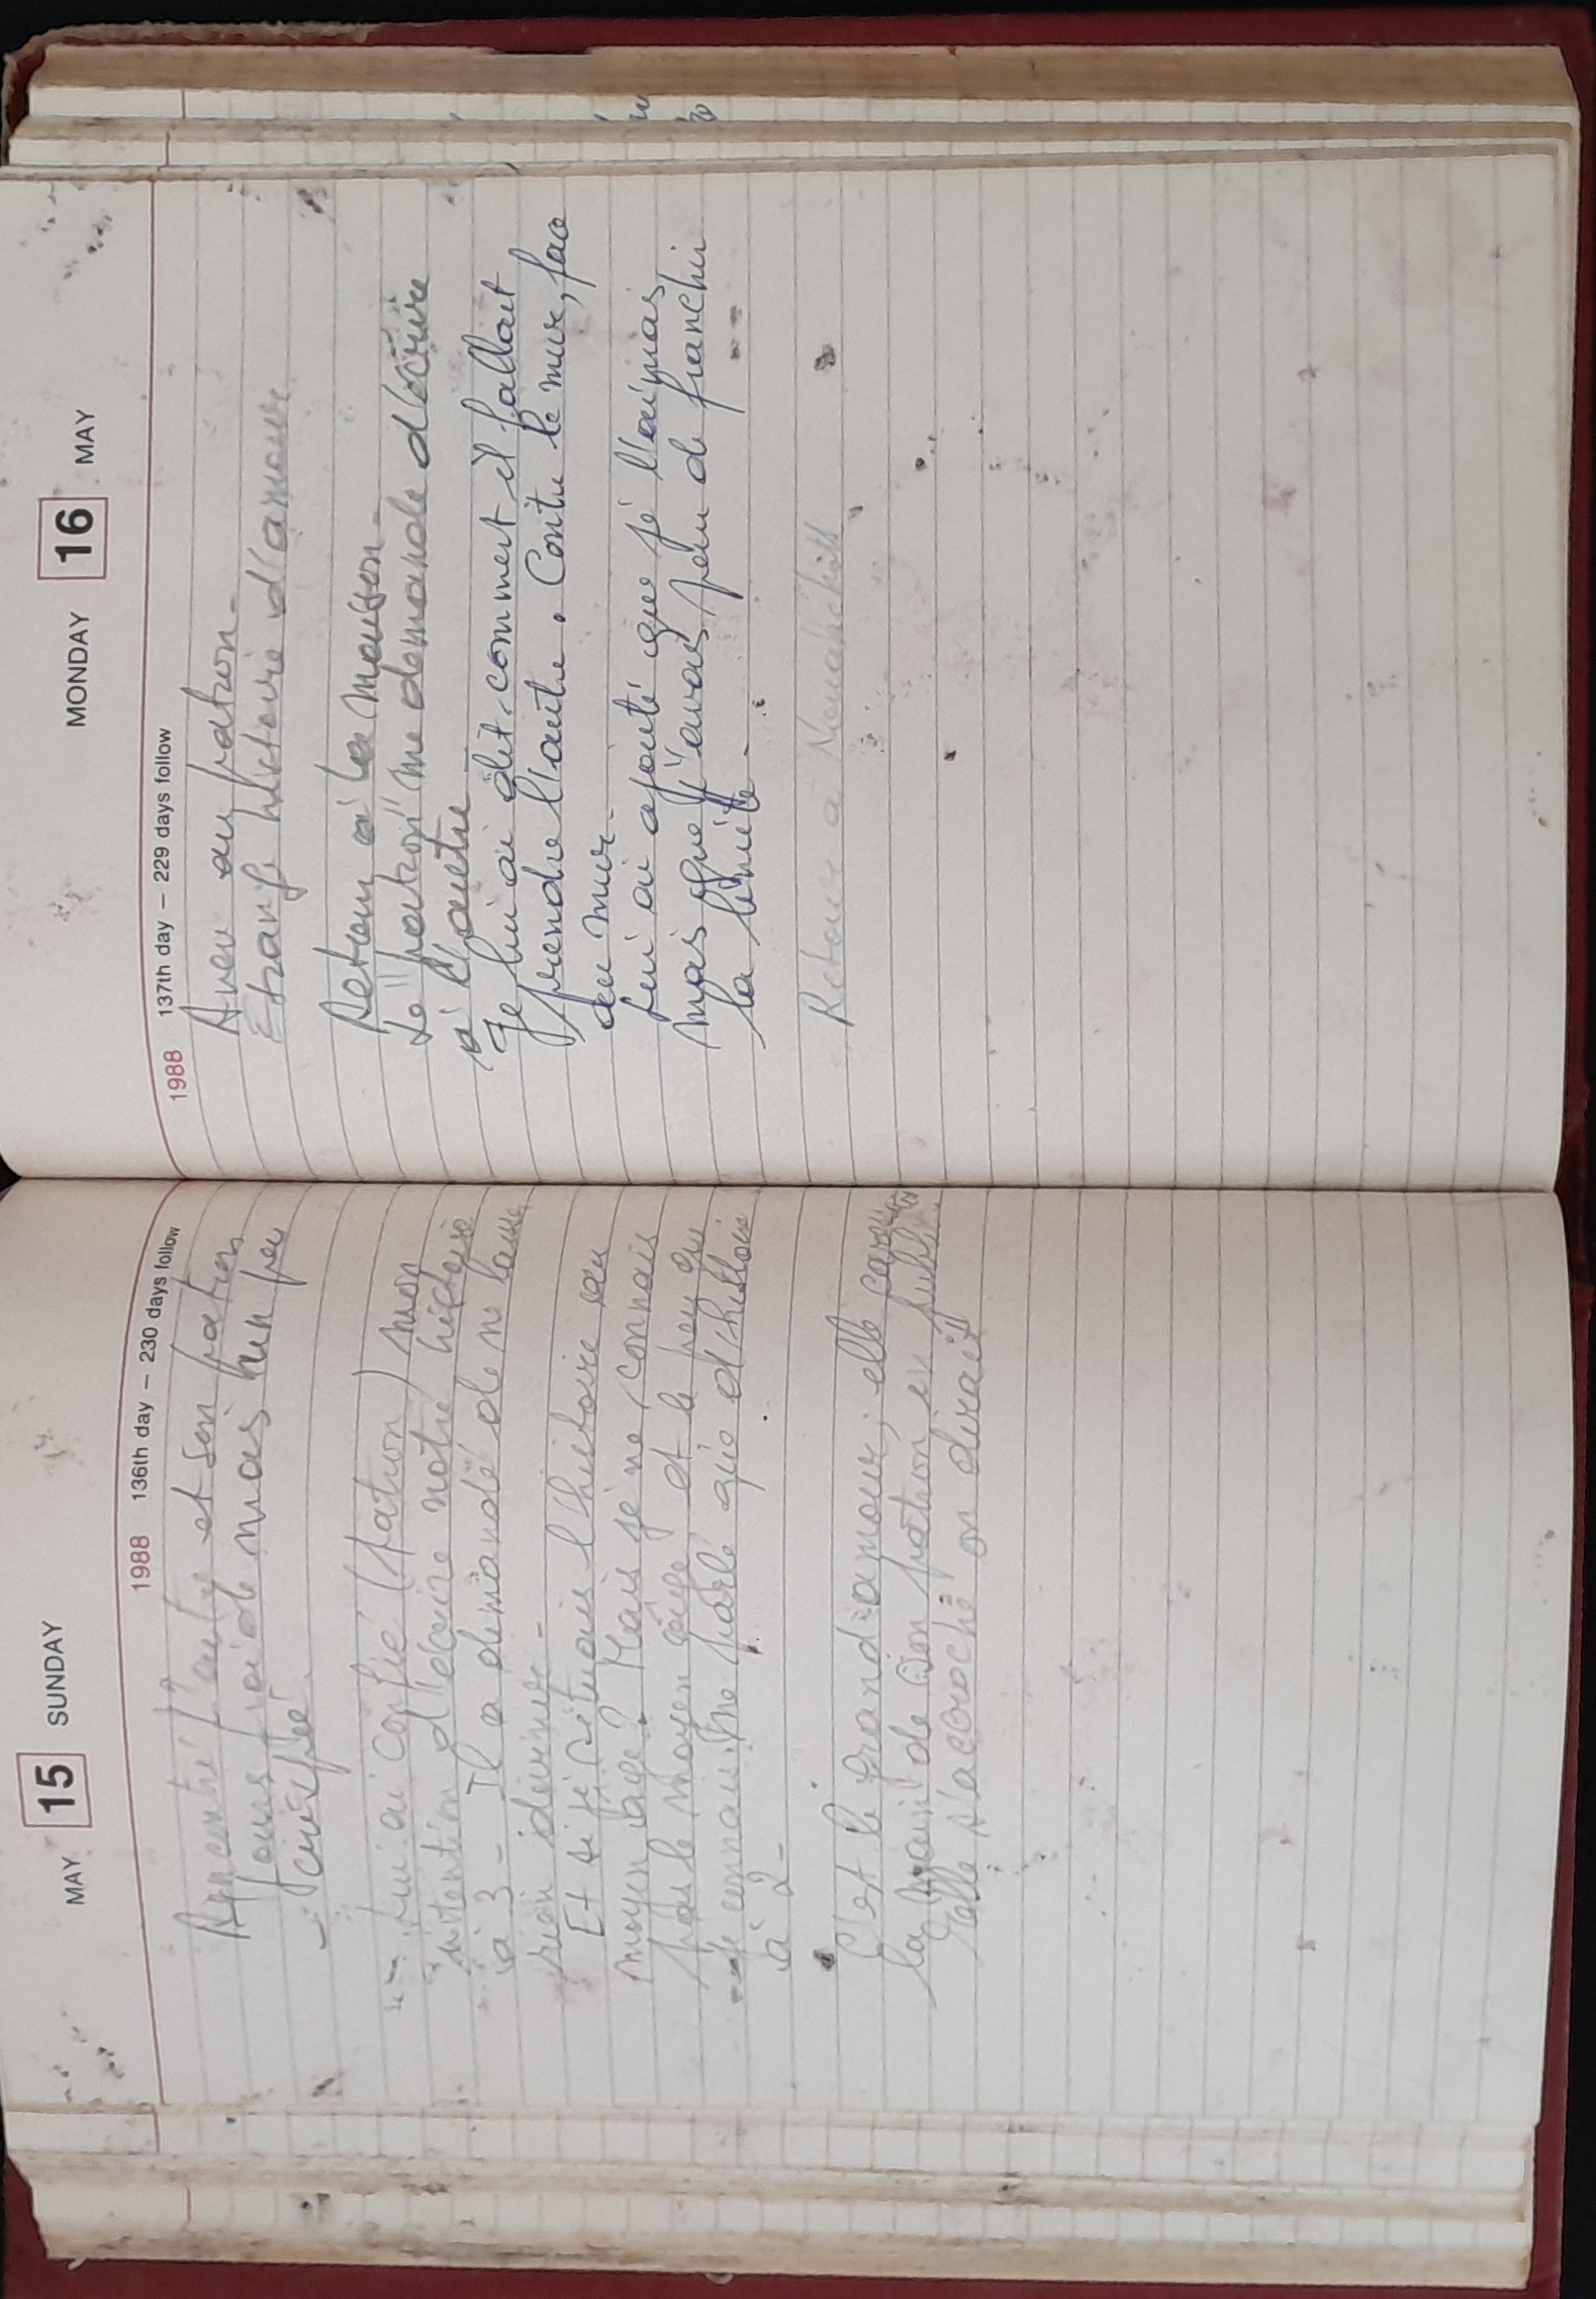 MAY 15 SUNDAY
1988 136th day – 230 days follow
Rencontré l'autre et son patron
Jours froids mais hun peu
crispée.
Lui ai confié (patron) mon
intention d'écrire notre histoire
à 3 – Il a demandé de ne
rien
Et si je situais l'histoire au
moyen age? Mais je ne connais
pas le moyen age et le peu que
je connais me parle que d'histoire
à 2 –
C'est le grand amour, elle
la main de son patron en public
elle s'accroche on dirait
MONDAY 16 MAY
1988 137th day – 229 days follow
Aveu au patron –
Etrange histoire d'amour
Retour à la maison –
Le patron me demande d'écrire
à l'autre –
Je lui ai dit comment il fallait
prendre l'autre. Contre le mur, face
au mur –
Lui ai ajouté que je l'aimais,
mais que j'avais peur de franchir
la limite –
Retour à Nouakchott